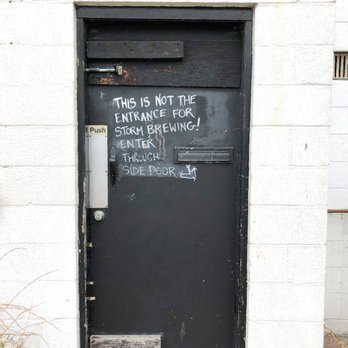 THIS IS NOT THE
ENTRANCE FOR
STORM BREWING!
Push
ENTER
THROUGH
SIDE DOOR